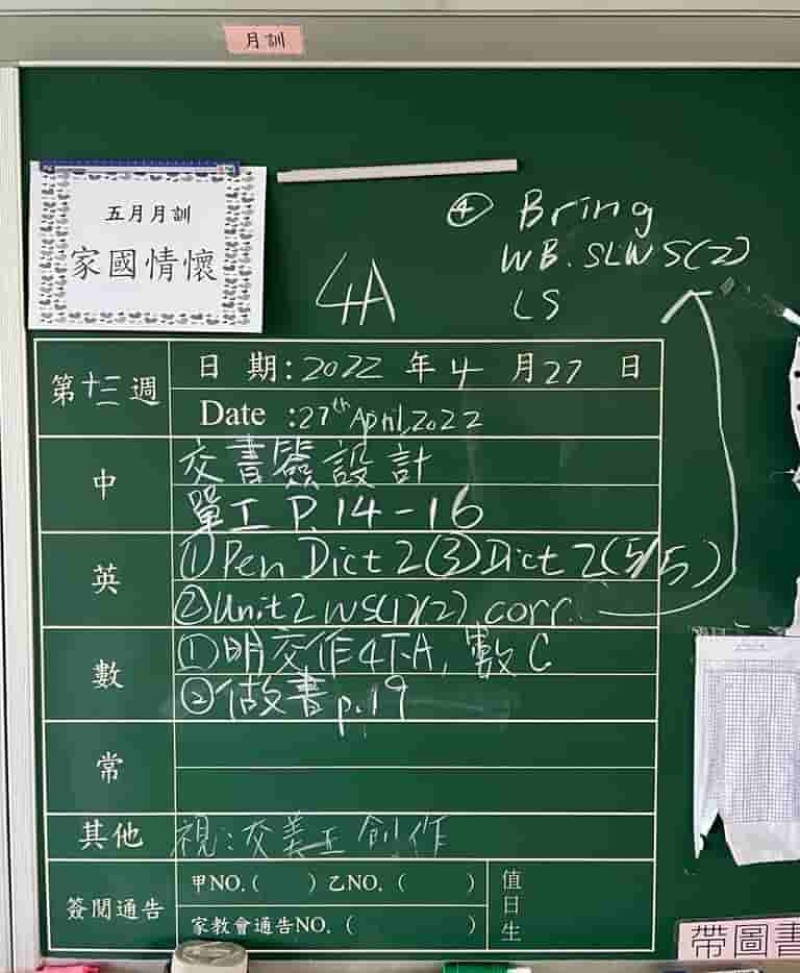 月訓
五月月訓
家國情懷
4A
④ Bring
WB. SLWS(2)
LS
第十三週
日 期:2022 年 4 月 27 日
Date :27th April, 2022
中
交書簽設計
單工 P.14-16
英
①Pen Dict 2 ③Dict 2(5/5)
②Unit 2 WS(1)(2) corr.
數
①明交作4下A, 數C
②做書p.19
常
其他
視:交美工創作
簽閱通告
甲NO.( ) 乙NO. ( )
家教會通告NO. ( )
值日生
帶圖書